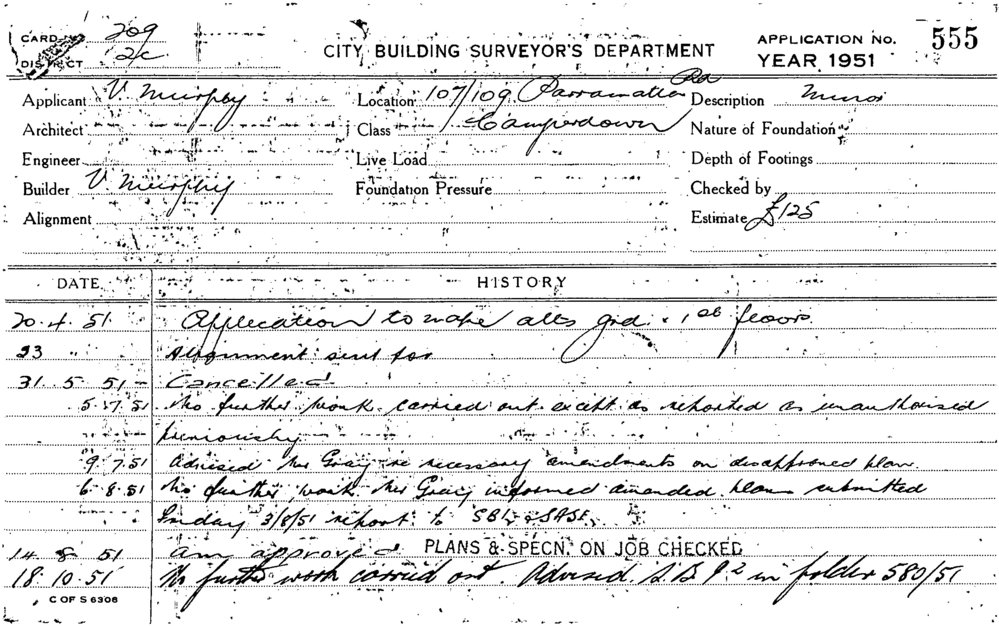 CARD No. 209
DISTRICT 2c
CITY BUILDING SURVEYOR'S DEPARTMENT
APPLICATION No. 555
YEAR 1951
Applicant V. Murphy
Location 107/109 Parramatta Rd
Description Minor
Architect
Class Camperdown
Nature of Foundation
Engineer
Live Load
Depth of Footings
Builder V. Murphy
Foundation Pressure
Checked by
Alignment
Estimate £125
DATE HISTORY
20.4.51 Application to make alts grd & 1st floors
23 " Alignment sent for
31.5.51 Cancelled
5.7.51 No further work carried out except as reported as unauthorised
previously
9.7.51 Advised Mr Gray re necessary amendments on disapproved plan
6.8.51 No further work. Mr Gray informed amended plans submitted
Friday 3/8/51 report to SBI
14 8 51 approved PLANS & SPECN. ON JOB CHECKED
18.10.51 No further work carried out. Advised in folder 580/51
C OF S 6306